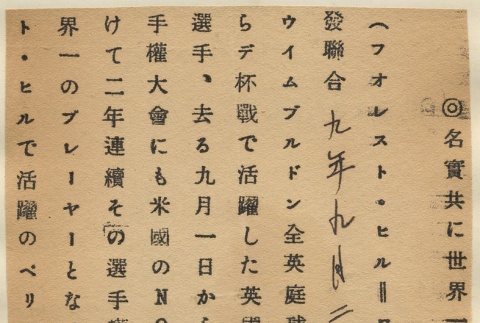 ◎名實共に世界一
(フオレスト・ヒル=
發聯合 九年九月二
ウイムブルドン全英庭球
らデ杯戰で活躍した英國
選手、去る九月一日から
手權大會にも米國のNO
けて二年連續その選手權
界一のプレーヤーとな
ト・ヒルで活躍のペリ